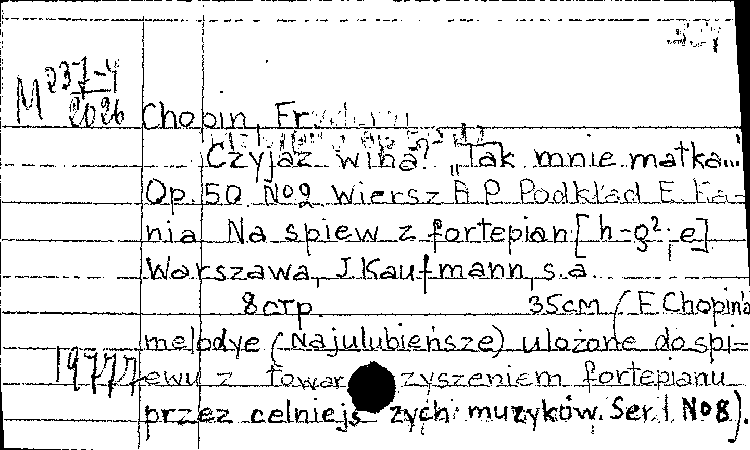 M 237-4
2026
Chopin, Fryderyk
Czyjaż wina? "Tak mnie matka..."
Op. 50 No2 Wiersz A P Podkład E. Ka-
nia Na śpiew z fortepian [h-g²; e]
Warszawa, J. Kaufmann, s.a.
8 стр. 35см (F. Chopin'a
melodye (Najulubieńsze) ulożone do śpi-
19777 ewu z towar zyszeniem fortepianu
przez celniejs zych muzyków. Ser. I No8).